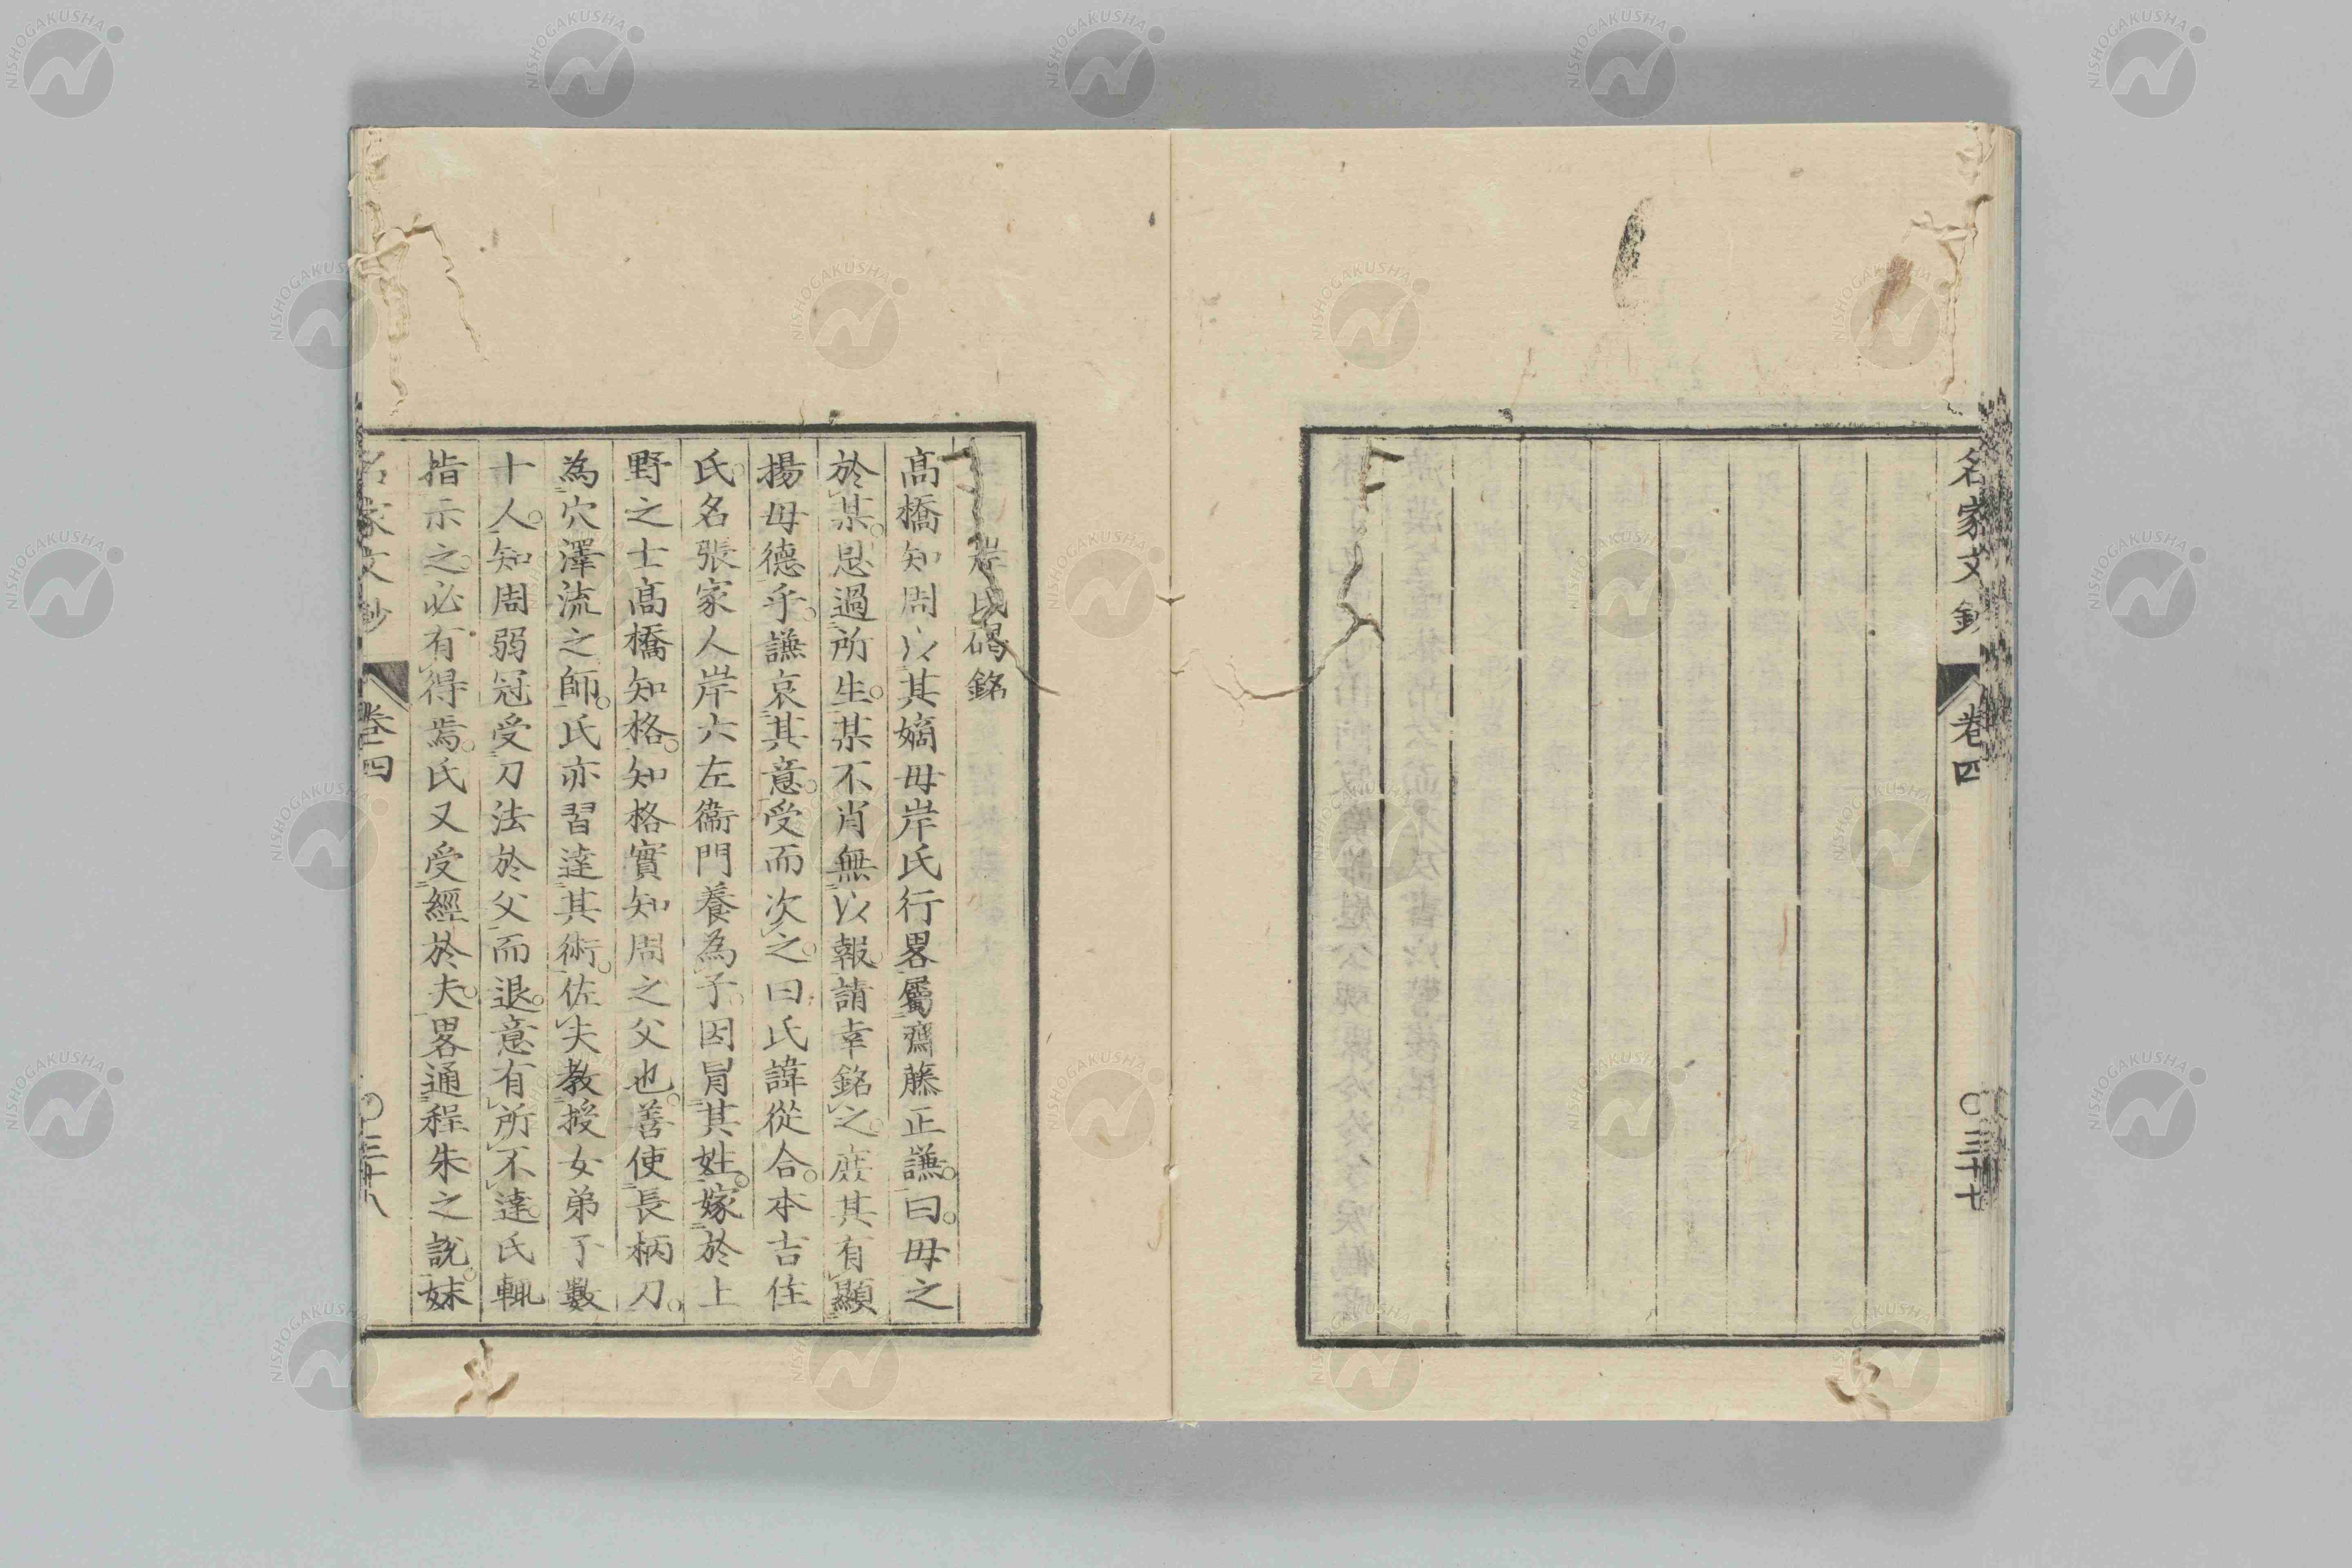 名家文鈔 卷四 〇三十七
岸氏碣銘
髙橋知周以其嫡母岸氏行畧屬齋藤正謙。曰。母之
於某。恩過所生。某不肖無以報。請幸銘之。庶其有顯
揚母德乎。謙哀其意。受而次之。曰氏諱從合。本吉住
氏。名張家人岸六左衞門養為子。因冐其姓。嫁於上
野之士髙橋知格。知格實知周之父也。善使長柄刀。
為穴澤流之師。氏亦習達其術。佐夫教授女弟子數
十人。知周弱冠受刀法於父。而退。意有所不達。氏輙
指示之。必有得焉。氏又受經於夫。畧通程朱之說。妺
名家文鈔 卷四 〇三十八